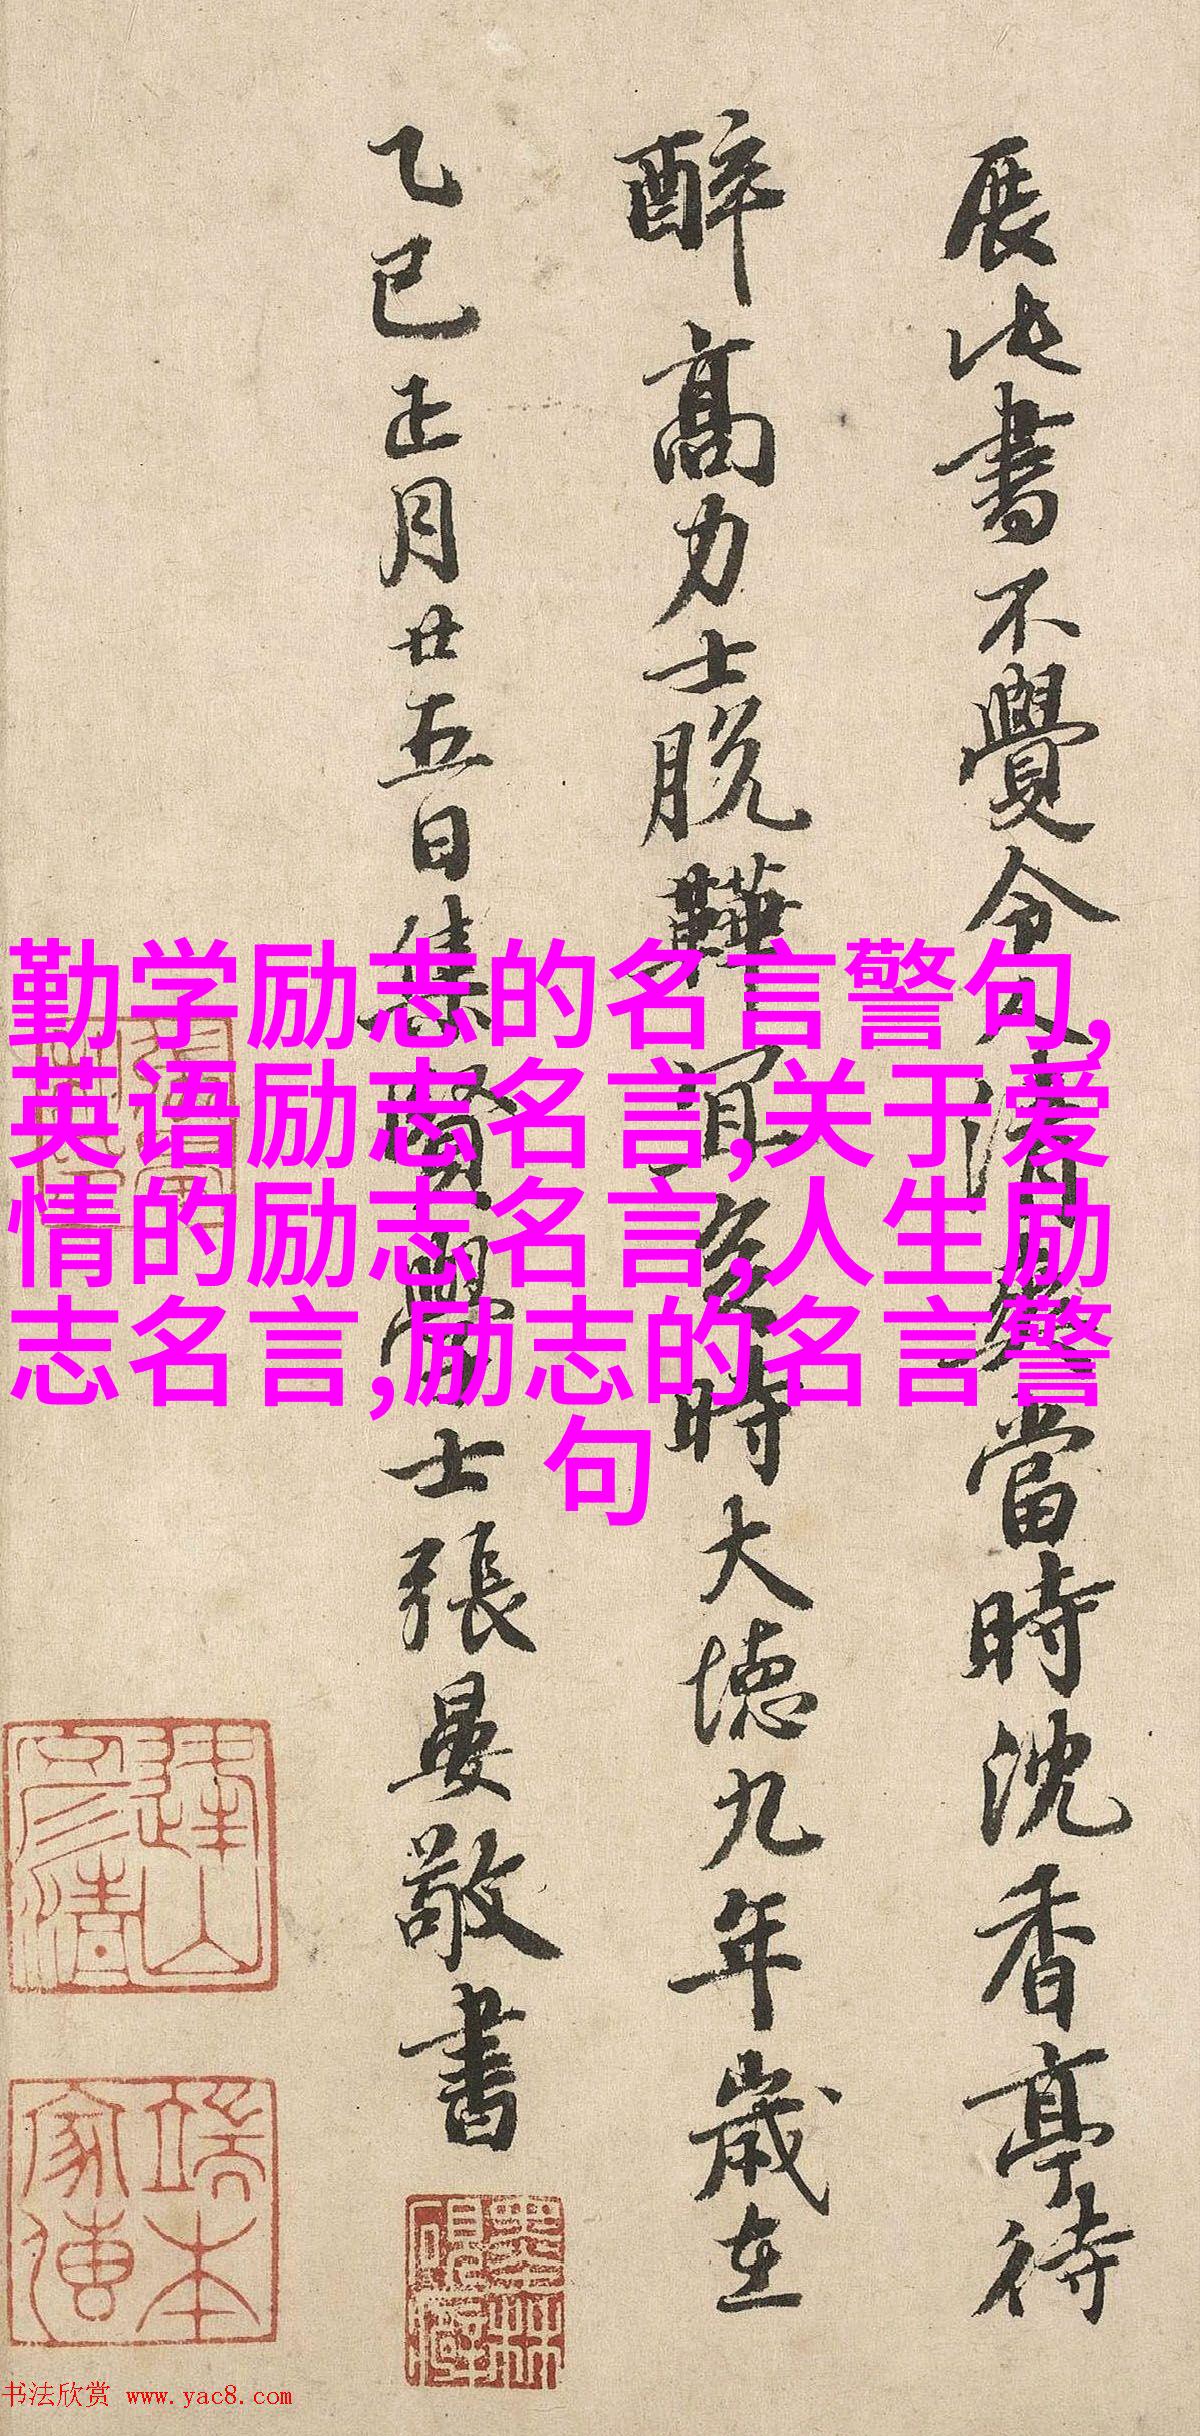 展此書不覺令人清興當時沈香亭待
醉高力士脫鞾
時大德九年歲在
乙巳正月廿五日集賢學士張晏敬書
勤学励志的名言警句,
英语励志名言,关于爱
情的励志名言,人生励
志名言,励志的名言警
句
书法欣赏 www.yac8.com